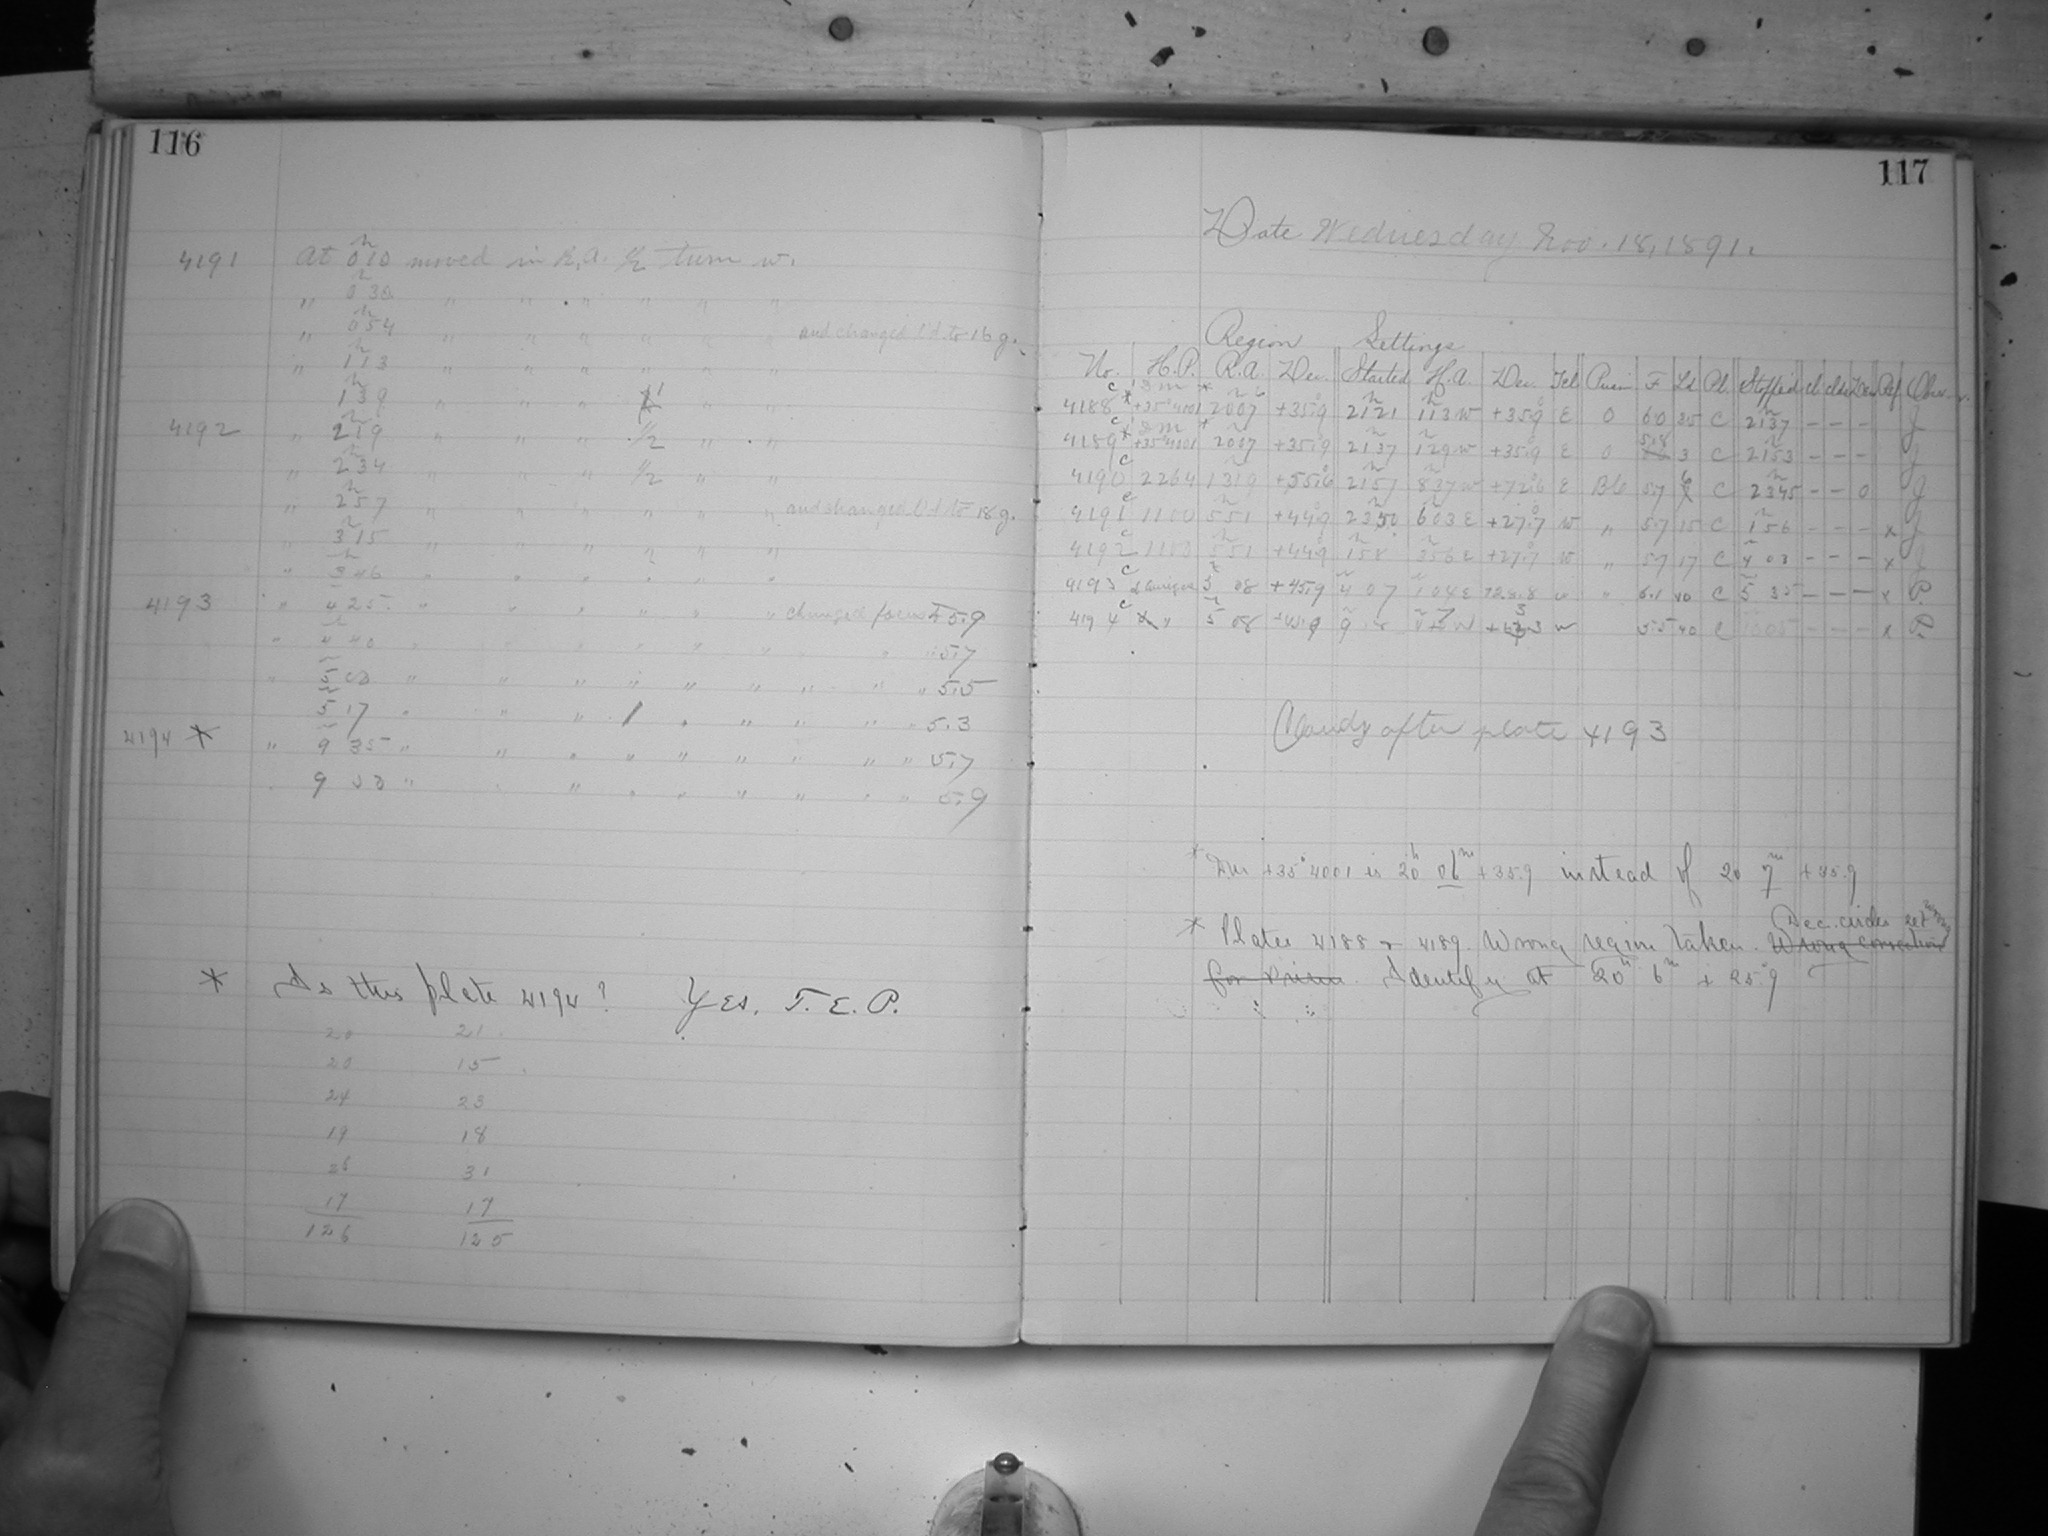 116
4191 At 0 10 moved in R.A. 1/2 turn w.
" 0 30 " " " " " "
" 0 54 " " " " " " and changed Dd. to 16 g.
" 1 13 " " " " " "
1 39 1
4192 " 2 19 " " " 1/2 " "
" 2 34 " " " 1/2 " "
" 2 57 " " " " " " and changed Dd. to 18 g.
" 3 15 " " " " " "
" 3 46 " " " " " "
4193 " 4 25 " " " " " " changed focus to 5.9
" 4 40 " " " " " " " " 5.7
" 5 " " " " " " " " " 5.5
5 17 " " " 1 " " " " " 5.3
4194 * " 9 35 " " " " " " " " " 5.7
9 " " " " " " " " 5.9
* Is this plate 4194? Yes. T. E. P.
20 21
20 15
24 23
19 18
26 31
17 17
126 125
117
Date Wednesday Nov. 18, 1891.
Region Settings
No. H.P. R.A. Dec. Started H.A. Dec. Tel F Ld Pl. Stopped cl Ref Obser
4188 c * DM +35°4001 * 20 07 6 +35.9 21 21 1 13 w +35.9 E 0 6.0 35 C 21 37 - - - J
4189 c * DM +35°4001 * 20 07 +35.9 21 37 1 29 w +35.9 E 0 5.8 3 C 21 53 - - - J
4190 c 2264 13 19 +55.6 21 57 8 37 w +72.6 E 5.7 6 C 23 45 - - 0 J
4191 c 1100 5 51 +44.9 23 50 6 03 E +27.7 w " 5.7 15 C 1 56 - - - x J
4192 c 1100 5 51 +44.9 1 58 3 56 E +27.7 w " 5.7 17 C 4 03 - - - x J
4193 c 5 08 +45.9 4 07 1 04 E w " 6.1 40 C 5 35 - - - x P.
4194 c " 5 08 +45.9 9 w 5.5 40 C - - - x P.
Cloudy after plate 4193
* DM +35°4001 is 20h 06m +35.9 instead of 20 7m +35.9
* Plates 4188 & 4189. Wrong region taken. Wrong correction Dec. circle set
for Prism. Identify at 20h 6m + 25.9